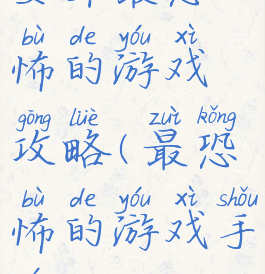 bù de yóu xì
怖的游戏
gōng lüè zuì kǒng
攻略(最恐
bù de yóu xì shǒu
怖的游戏手